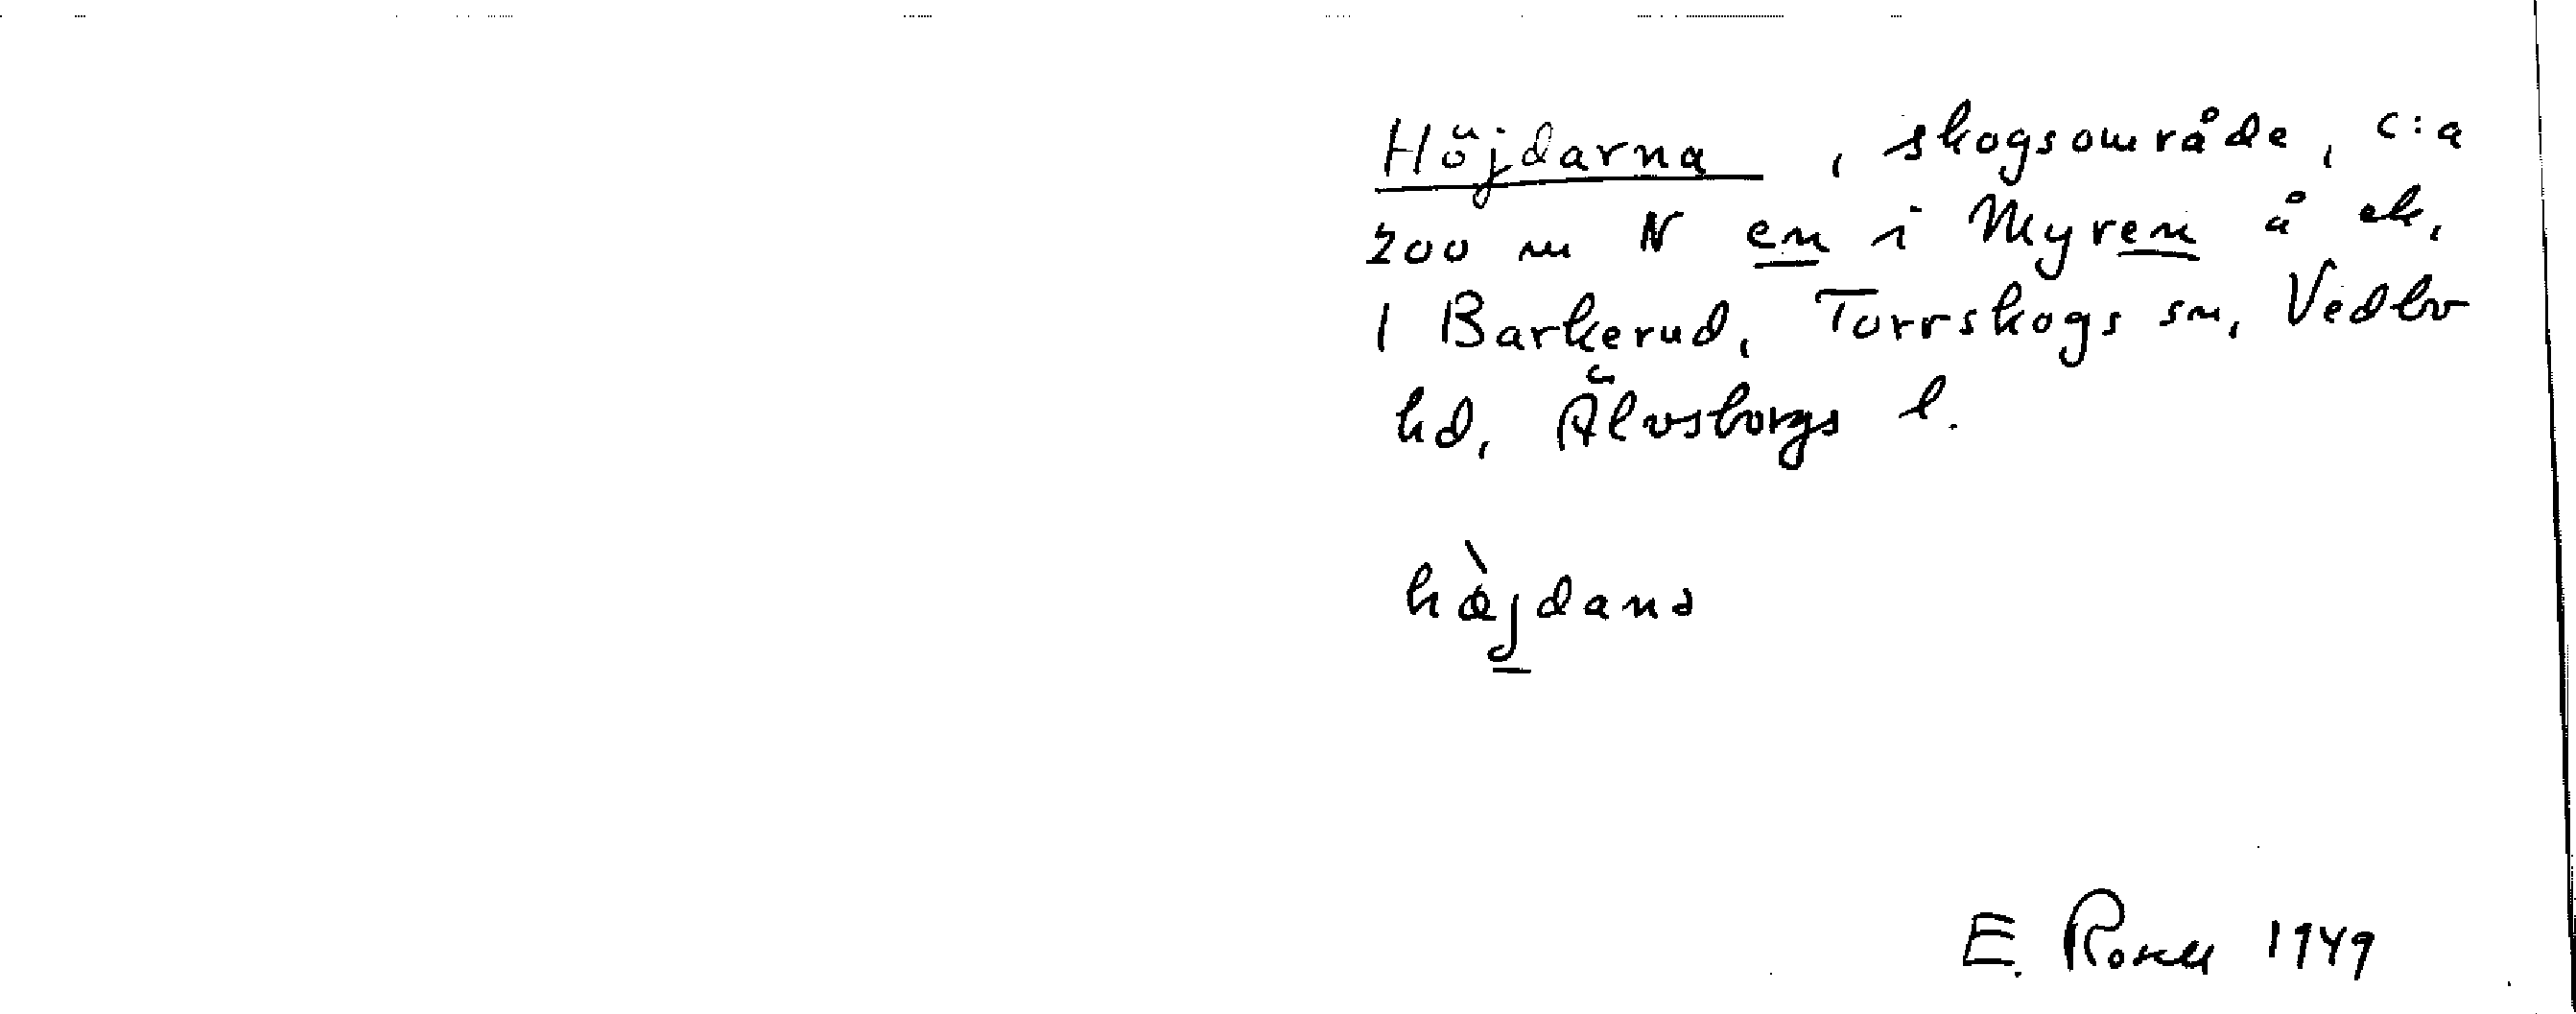 Höjdarna, skogsområde, c:a
200 m N en i Myren å ek.
1 Barkerud, Torrskogs sn, Vedbo
hd, Älvsborgs l.
hæ̀jdanə
E. 1949